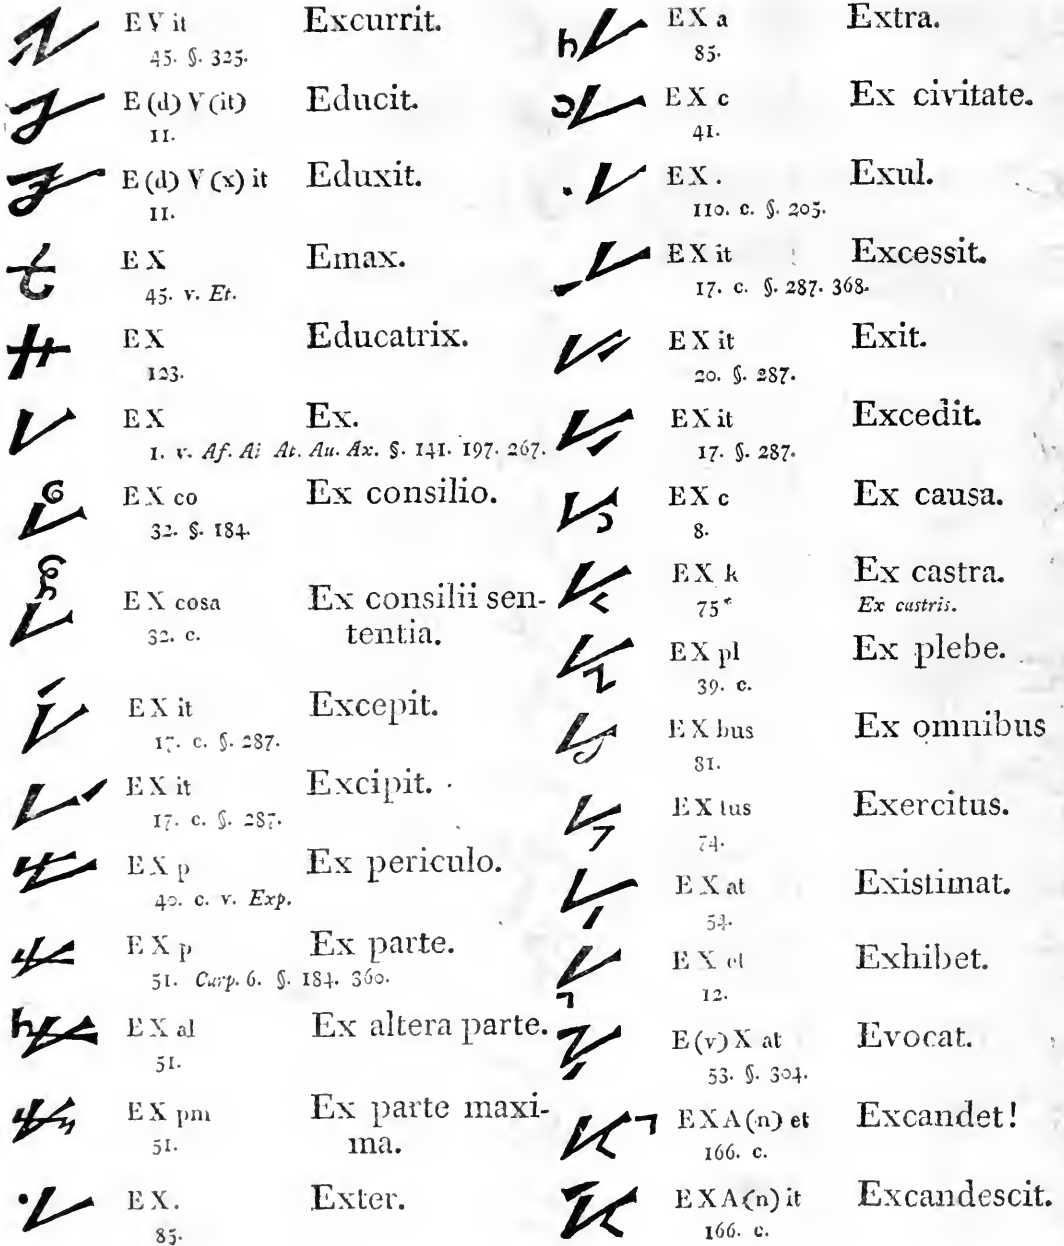 E V it Excurrit.
45. §. 325.
E (d) V (it) Educit.
11.
E (d) V (x) it Eduxit.
11.
E X Emax.
45. v. Et.
E X Educatrix.
123.
E X Ex.
1. v. Af. Ai At. Au. Ax. §. 141. 197. 267.
E X co Ex consilio.
32. §. 184.
E X cosa Ex consilii sen-
32. c. tentia.
E X it Excepit.
17. c. §. 287.
E X it Excipit.
17. c. §. 287.
E X p Ex periculo.
40. c. v. Exp.
E X p Ex parte.
51. Carp. 6. §. 184. 360.
E X al Ex altera parte.
51.
E X pm Ex parte maxi-
51. ma.
E X. Exter.
85.
E X a Extra.
85.
E X c Ex civitate.
41.
E X. Exul.
110. c. §. 205.
E X it Excessit.
17. c. §. 287. 368.
E X it Exit.
20. §. 287.
E X it Excedit.
17. §. 287.
E X c Ex causa.
8.
E X k Ex castra.
75* Ex castris.
E X pl Ex plebe.
39. c.
E X bus Ex omnibus
81.
E X tus Exercitus.
74.
E X at Existimat.
54.
E X et Exhibet.
12.
E (v) X at Evocat.
53. §. 304.
E X A (n) et Excandet!
166. c.
E X A (n) it Excandescit.
166. c.